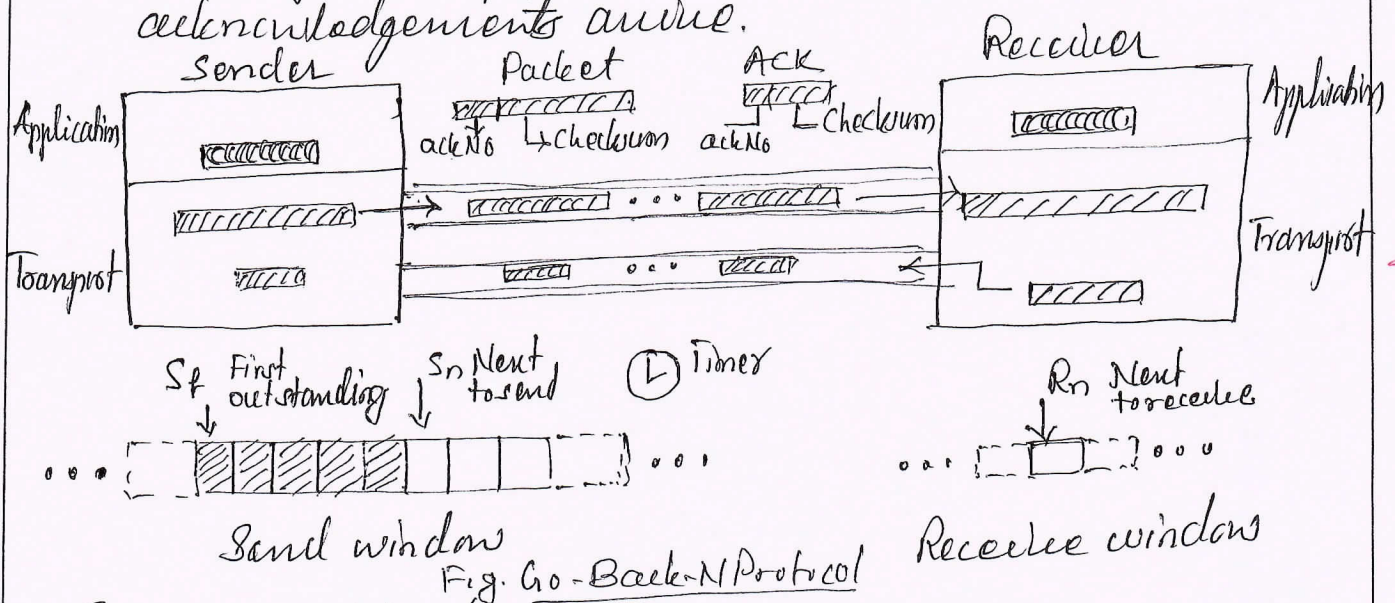 acknowledgements arrive.
Sender Packet ACK Receiver
Application ackNo Checksum ackNo Checksum Application
Transport Transport
Sf First outstanding Sn Next to send Timer Rn Next to receive
Send window Receive window
Fig. Go-Back-N Protocol